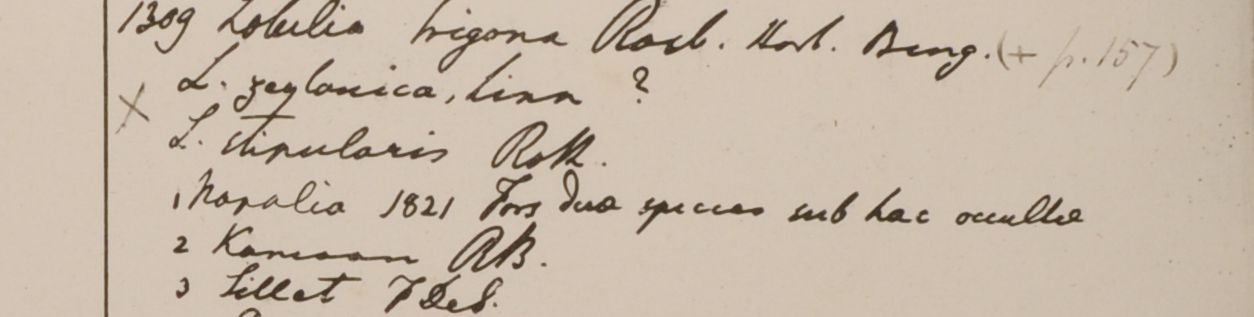 1309 Lobelia trigona Roxb. Hort. Beng. (+ p. 157)
X L. zeylanica, Linn ?
L. stipularis Roth.
1 Napalia 1821 Fors duæ species sub hac occultæ
2 Kamaon RB.
3 Sillet F De S.